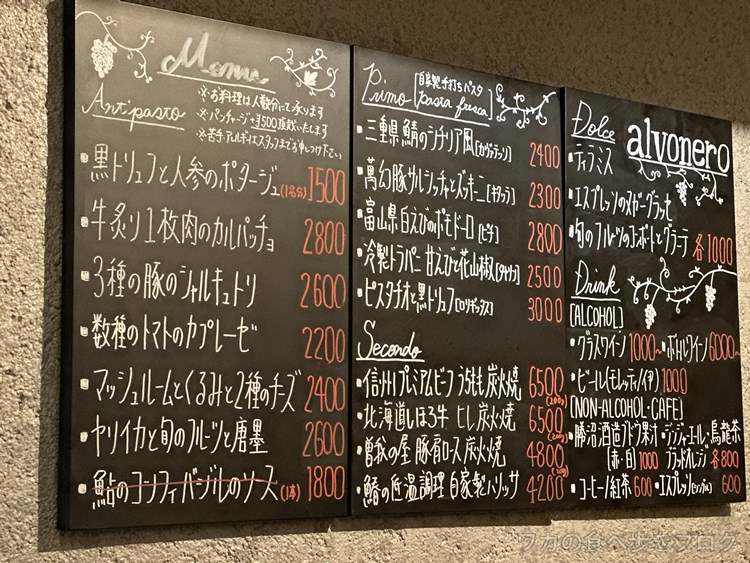 Menu
Antipasto
※お料理は人数分にて承ります
※パンチャージ¥500頂戴いたします
※苦手、アレルギーはスタッフまでお申しつけ下さい
黒トリュフと人参のポタージュ(1名分) 1500
牛炙り1枚肉のカルパッチョ 2800
3種の豚のシャルキュトリ 2600
数種のトマトのカプレーゼ 2200
マッシュルームとくるみと2種のチーズ 2400
ヤリイカと旬のフルーツと唐墨 2600
鮎のコンフィ バジルのソース (1本) 1800
Primo [自家製手打ちパスタ pasta fresca]
三重県鯖のシチリア風 2400
萬幻豚サルシッチャとズッキーニ[キタッラ] 2300
富山県白えびのポモドーロ[ピチ] 2800
冷製トラパニ 甘えびと花山椒 2500
ピスタチオと黒トリュフ 3000
Secondo
信州プレミアムビーフ うちもも 炭火焼 6500
(200g)
北海道しほろ牛 ヒレ 炭火焼 6500
曽我の屋 豚肩ロース 炭火焼 4800
鰆の低温調理 自家製ハリッサ 4200
Dolce
alvonero
ティラミス
エスプレッソのヌガーグラッセ
旬のフルーツのコンポートとグラニテ 各1000
Drink
[ALCOHOL]
グラスワイン 1000~ ・ボトルワイン 6000~
ビール(モレッティ/伊) 1000
[NON-ALCOHOL・CAFE]
勝沼醸造ブドウ果汁 ・ジンジャーエール・烏龍茶
[赤・白] 1000 ブラッドオレンジ 各800
コーヒー/紅茶 600 ・エスプレッソ 600
ワカの食べ歩きブログ